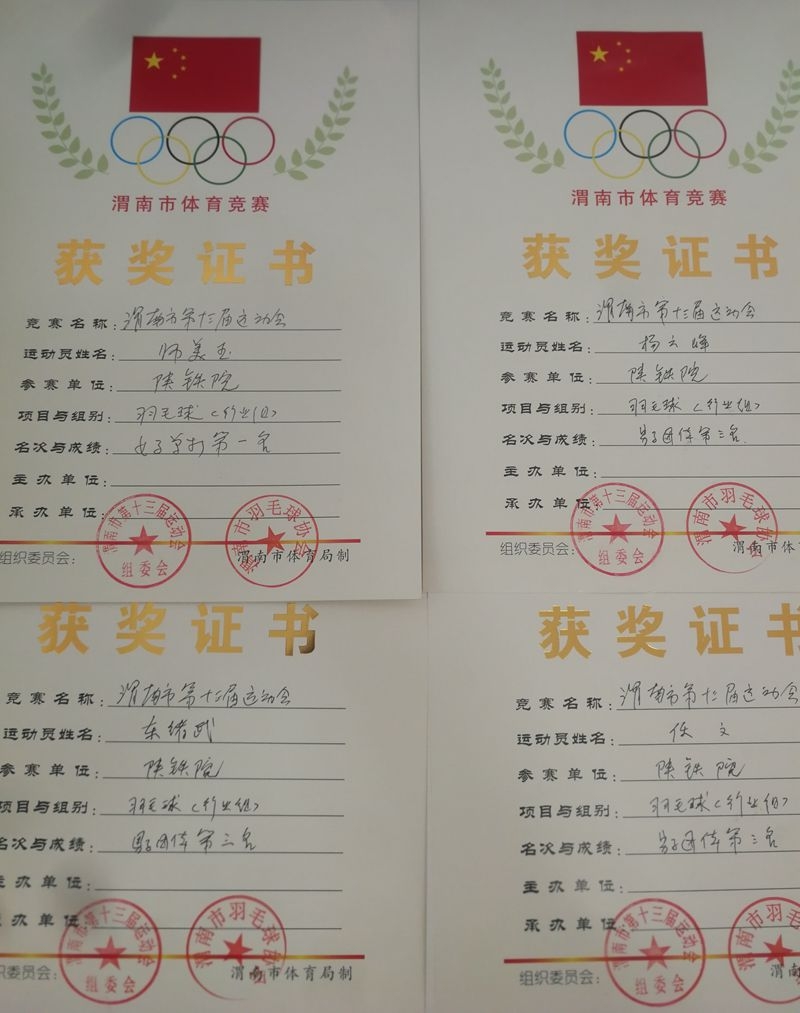 渭南市体育竞赛
获奖证书
竞赛名称：渭南市第十三届运动会
运动员姓名：师美玉
参赛单位：陕铁院
项目与组别：羽毛球（行业组）
名次与成绩：女子单打第一名
主办单位：
承办单位：
渭南市第十三届运动会
组委会
渭南市羽毛球协会
组织委员会：
渭南市体育局制
渭南市体育竞赛
获奖证书
竞赛名称：渭南市第十三届运动会
运动员姓名：杨云峰
参赛单位：陕铁院
项目与组别：羽毛球（行业组）
名次与成绩：男子团体第三名
主办单位：
承办单位：
渭南市第十三届运动会
组委会
渭南市羽毛球协会
组织委员会：
渭南市体
获奖证书
竞赛名称：渭南市第十三届运动会
运动员姓名：东绪武
参赛单位：陕铁院
项目与组别：羽毛球（行业组）
名次与成绩：男子团体第三名
主办单位：
承办单位：
渭南市第十三届运动会
组委会
渭南市羽毛球协会
织委员会：
渭南市体育局制
获奖证书
竞赛名称：渭南市第十三届运动会
运动员姓名：任文
参赛单位：陕铁院
项目与组别：羽毛球（行业组）
名次与成绩：男子团体第三名
主办单位：
承办单位：
渭南市第十三届运动会
组委会
渭南市羽毛球
组织委员会：
渭南